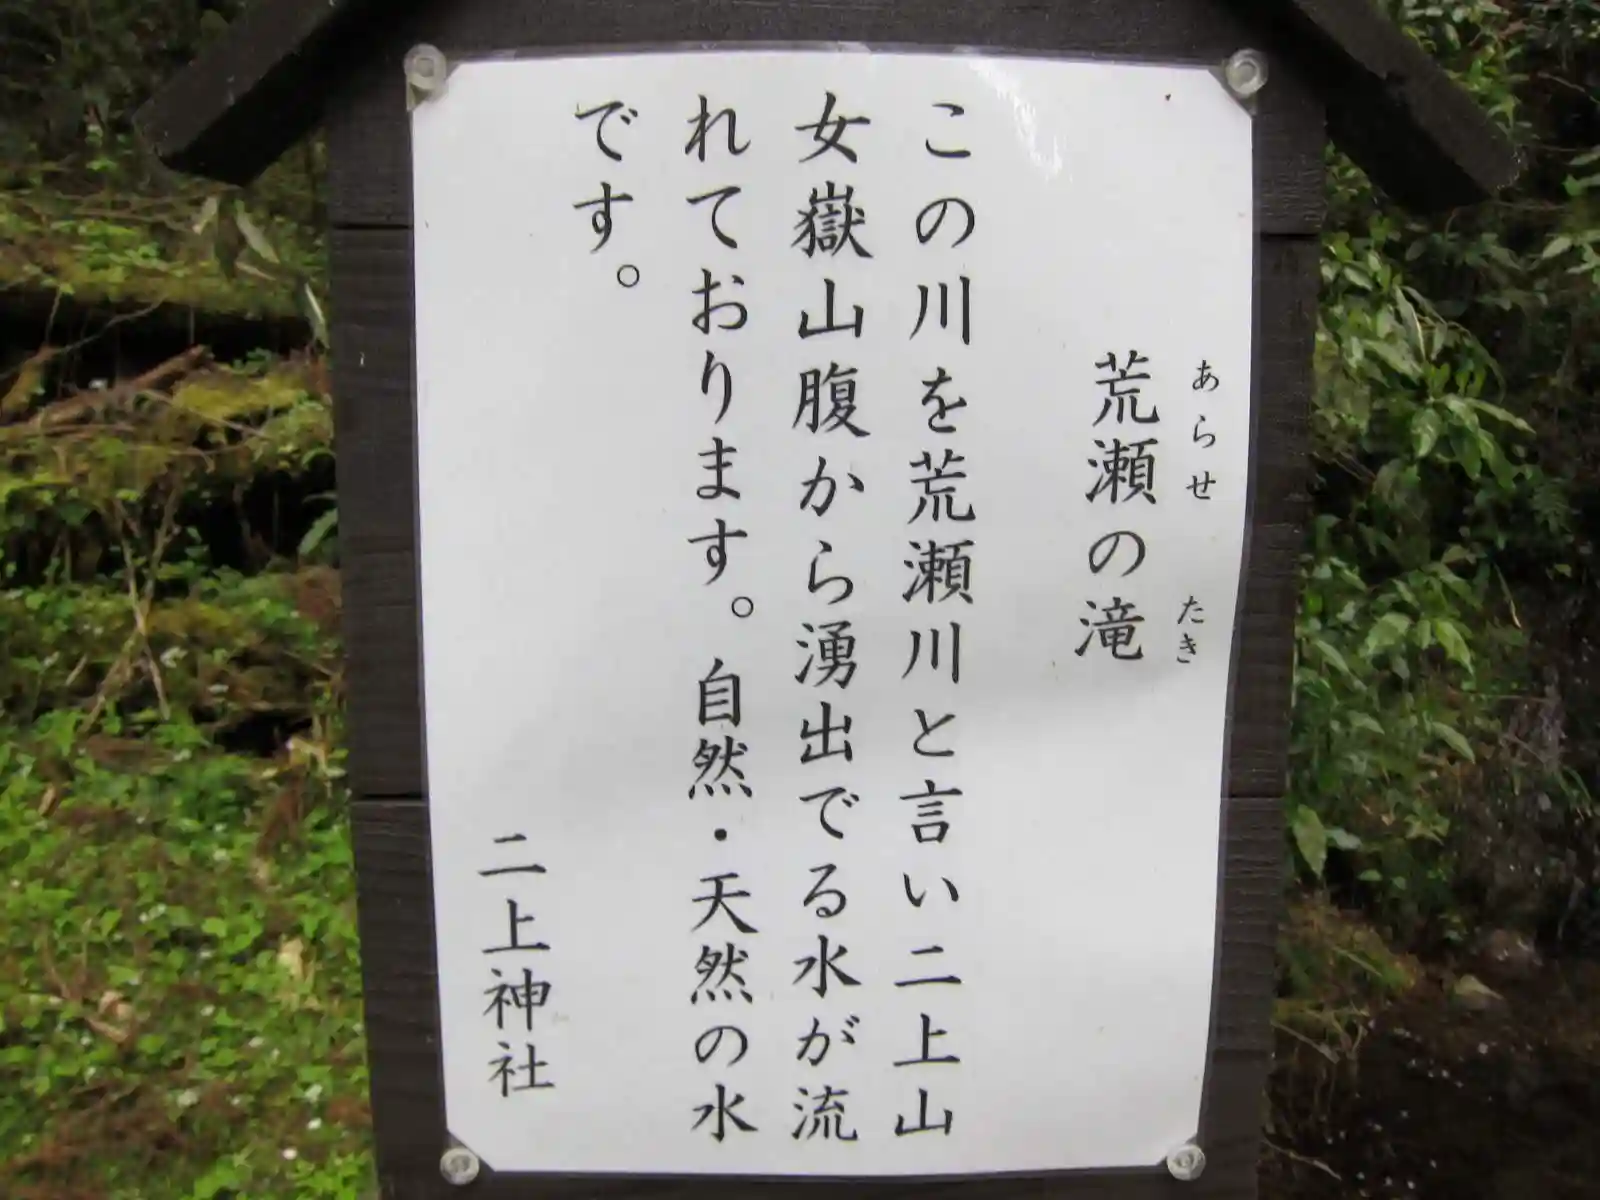 あらせ たき
荒瀬の滝
この川を荒瀬川と言い二上山
女嶽山腹から湧出でる水が流
れております。自然・天然の水
です。
二上神社